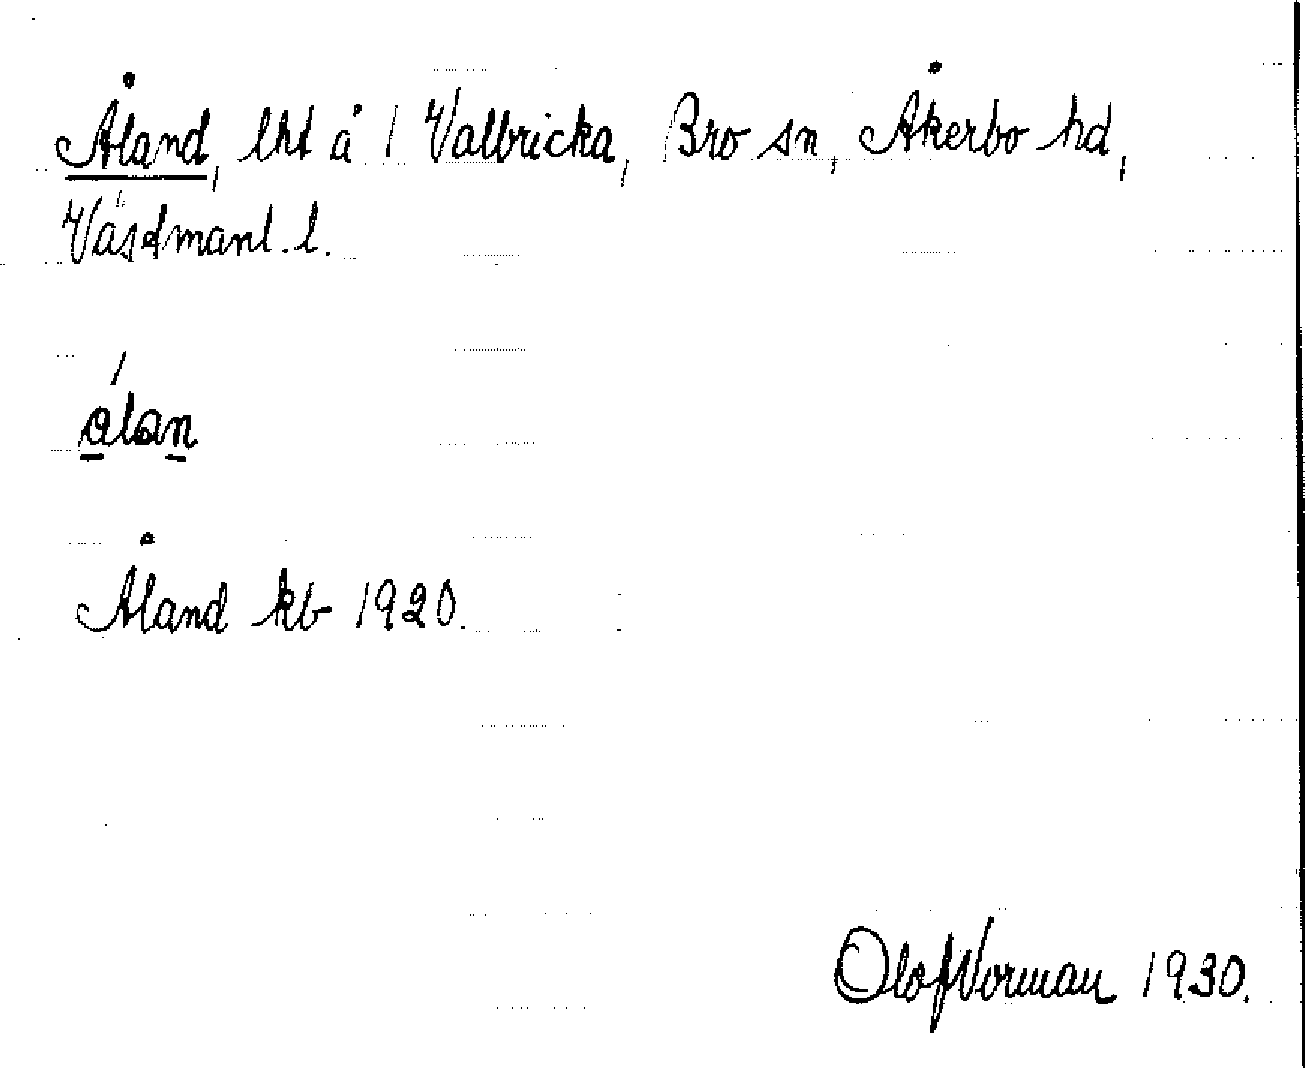 Åland, lht å 1 Valbricka, Bro sn, Åkerbo hd,
Väsdmanl. l.
ålan
Åland kb 1920.
Olof Norman 1930.